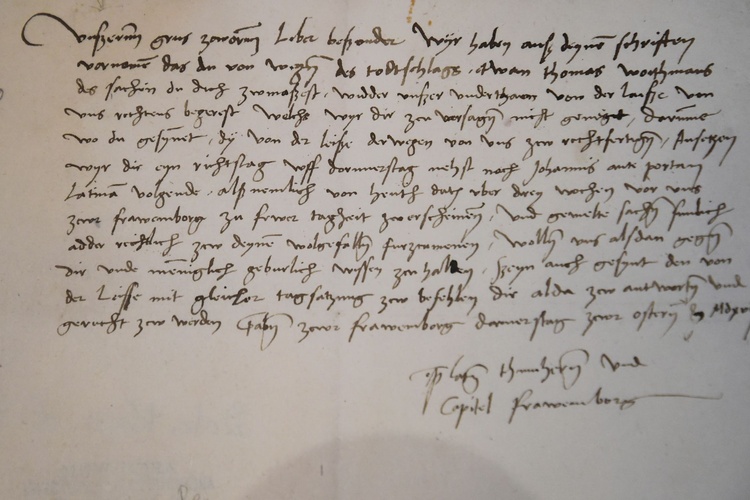 Unsernn grus zcuvornn Liber besonder Wyr haben auß deynen schriften
vornomen das du von wegen des todtschlags etwan thomas
des sachen du dich zwmassest widder unser underthanen von der Lasse von
uns rechtens begerest welchs wyr dir zcu vorsagen nicht geneigt dorumme
wo du gesynnet dy von der leiße derwegen von uns zcw rechtfertigen Ansetzen
wyr dir eyn richtstag uff donnerstag nehst noch Johannis ante portam
Latinam volgende alß nemlich von heuth datz uber dreyen wochen vor uns
zcwr frawenborg zu frwer tagzeit zcu erscheinen und gemelte sachen
adder rechtlich zcw deynem wolgefallen furzcunemen wollen uns alsdan gegen
dir unde menniglich geburlich wissen zcu halden seyn auch gesynt den von
der Loisse mit gleicher tagsatzung zcw befehlen dir alda zcw antworten und
gerecht zcw werden Geben zcwr frawenborg donnerstag zcwr ostern
thumherren und
Capitel frawenborg